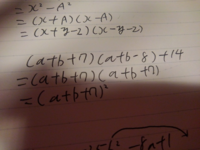 = x² - A²
= (x + A) (x - A)
= (x + y - 2) (x - y - 2)
(a + b + 7) (a + b - 8) + 14
= (a + b + 7) (a + b + 7)
= (a + b + 7)²